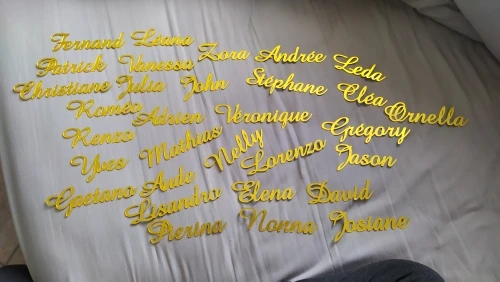 Fernand Léana
Patrick Vanessa Zora Andrée Leda
Christiane Julia John Stéphane Cléa
Roméo Adrien Véronique Ornella
Renzo Mathias Nelly Grégory
Yves Lorenzo Jason
Gaetano Aude
Lisandro Elena David
Pierina Nonna Josiane